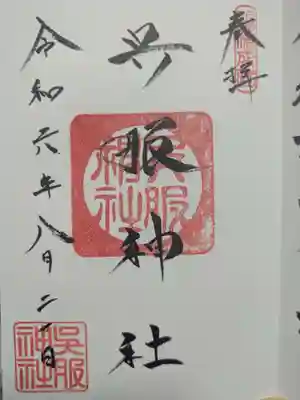 奉拝
呉服神社
吳服神社
令和六年八月二一日
吳服神社